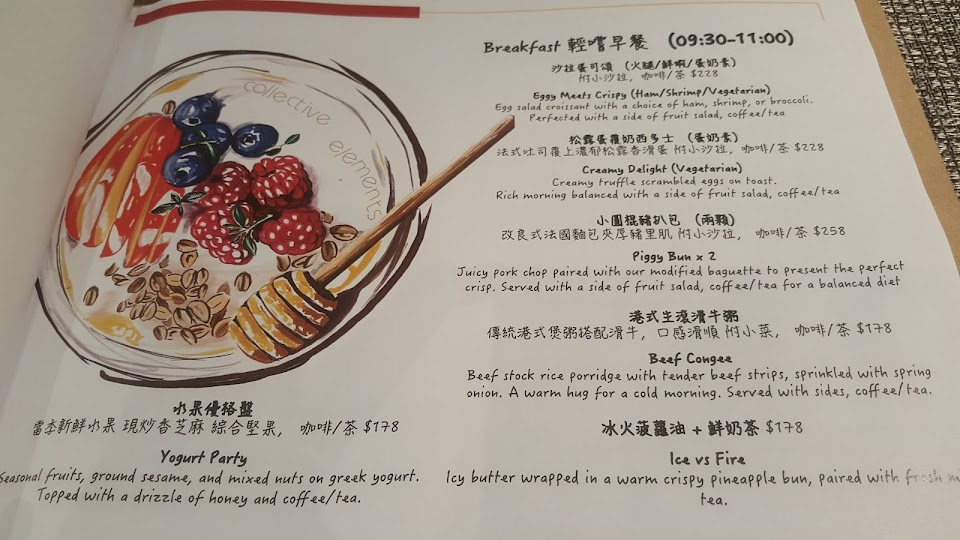 collective
elements
水果優格盤
當季新鮮水果 現炒香芝麻 綜合堅果， 咖啡/茶 $178
Yogurt Party
Seasonal fruits, ground sesame, and mixed nuts on greek yogurt.
Topped with a drizzle of honey and coffee/tea.
Breakfast 輕嚐早餐 (09:30-11:00)
沙拉蛋可頌 (火腿/鮮蝦/蛋奶素)
附小沙拉， 咖啡/茶 $228
Eggy Meets Crispy (Ham/Shrimp/Vegetarian)
Egg salad croissant with a choice of ham, shrimp, or broccoli.
Perfected with a side of fruit salad, coffee/tea
松露蛋覆奶西多士 (蛋奶素)
法式吐司覆上濃郁松露香滑蛋 附小沙拉， 咖啡/茶 $228
Creamy Delight (Vegetarian)
Creamy truffle scrambled eggs on toast.
Rich morning balanced with a side of fruit salad, coffee/tea
小圓棍豬扒包 (兩顆)
改良式法國麵包夾厚豬里肌 附小沙拉， 咖啡/茶 $258
Piggy Bun x 2
Juicy pork chop paired with our modified baguette to present the perfect
crisp. Served with a side of fruit salad, coffee/tea for a balanced diet
港式生滾滑牛粥
傳統港式煲粥搭配滑牛， 口感滑順 附小菜， 咖啡/茶 $178
Beef Congee
Beef stock rice porridge with tender beef strips, sprinkled with spring
onion. A warm hug for a cold morning. Served with sides, coffee/tea.
冰火菠蘿油 + 鮮奶茶 $178
Ice vs Fire
Icy butter wrapped in a warm crispy pineapple bun, paired with fresh mi
tea.